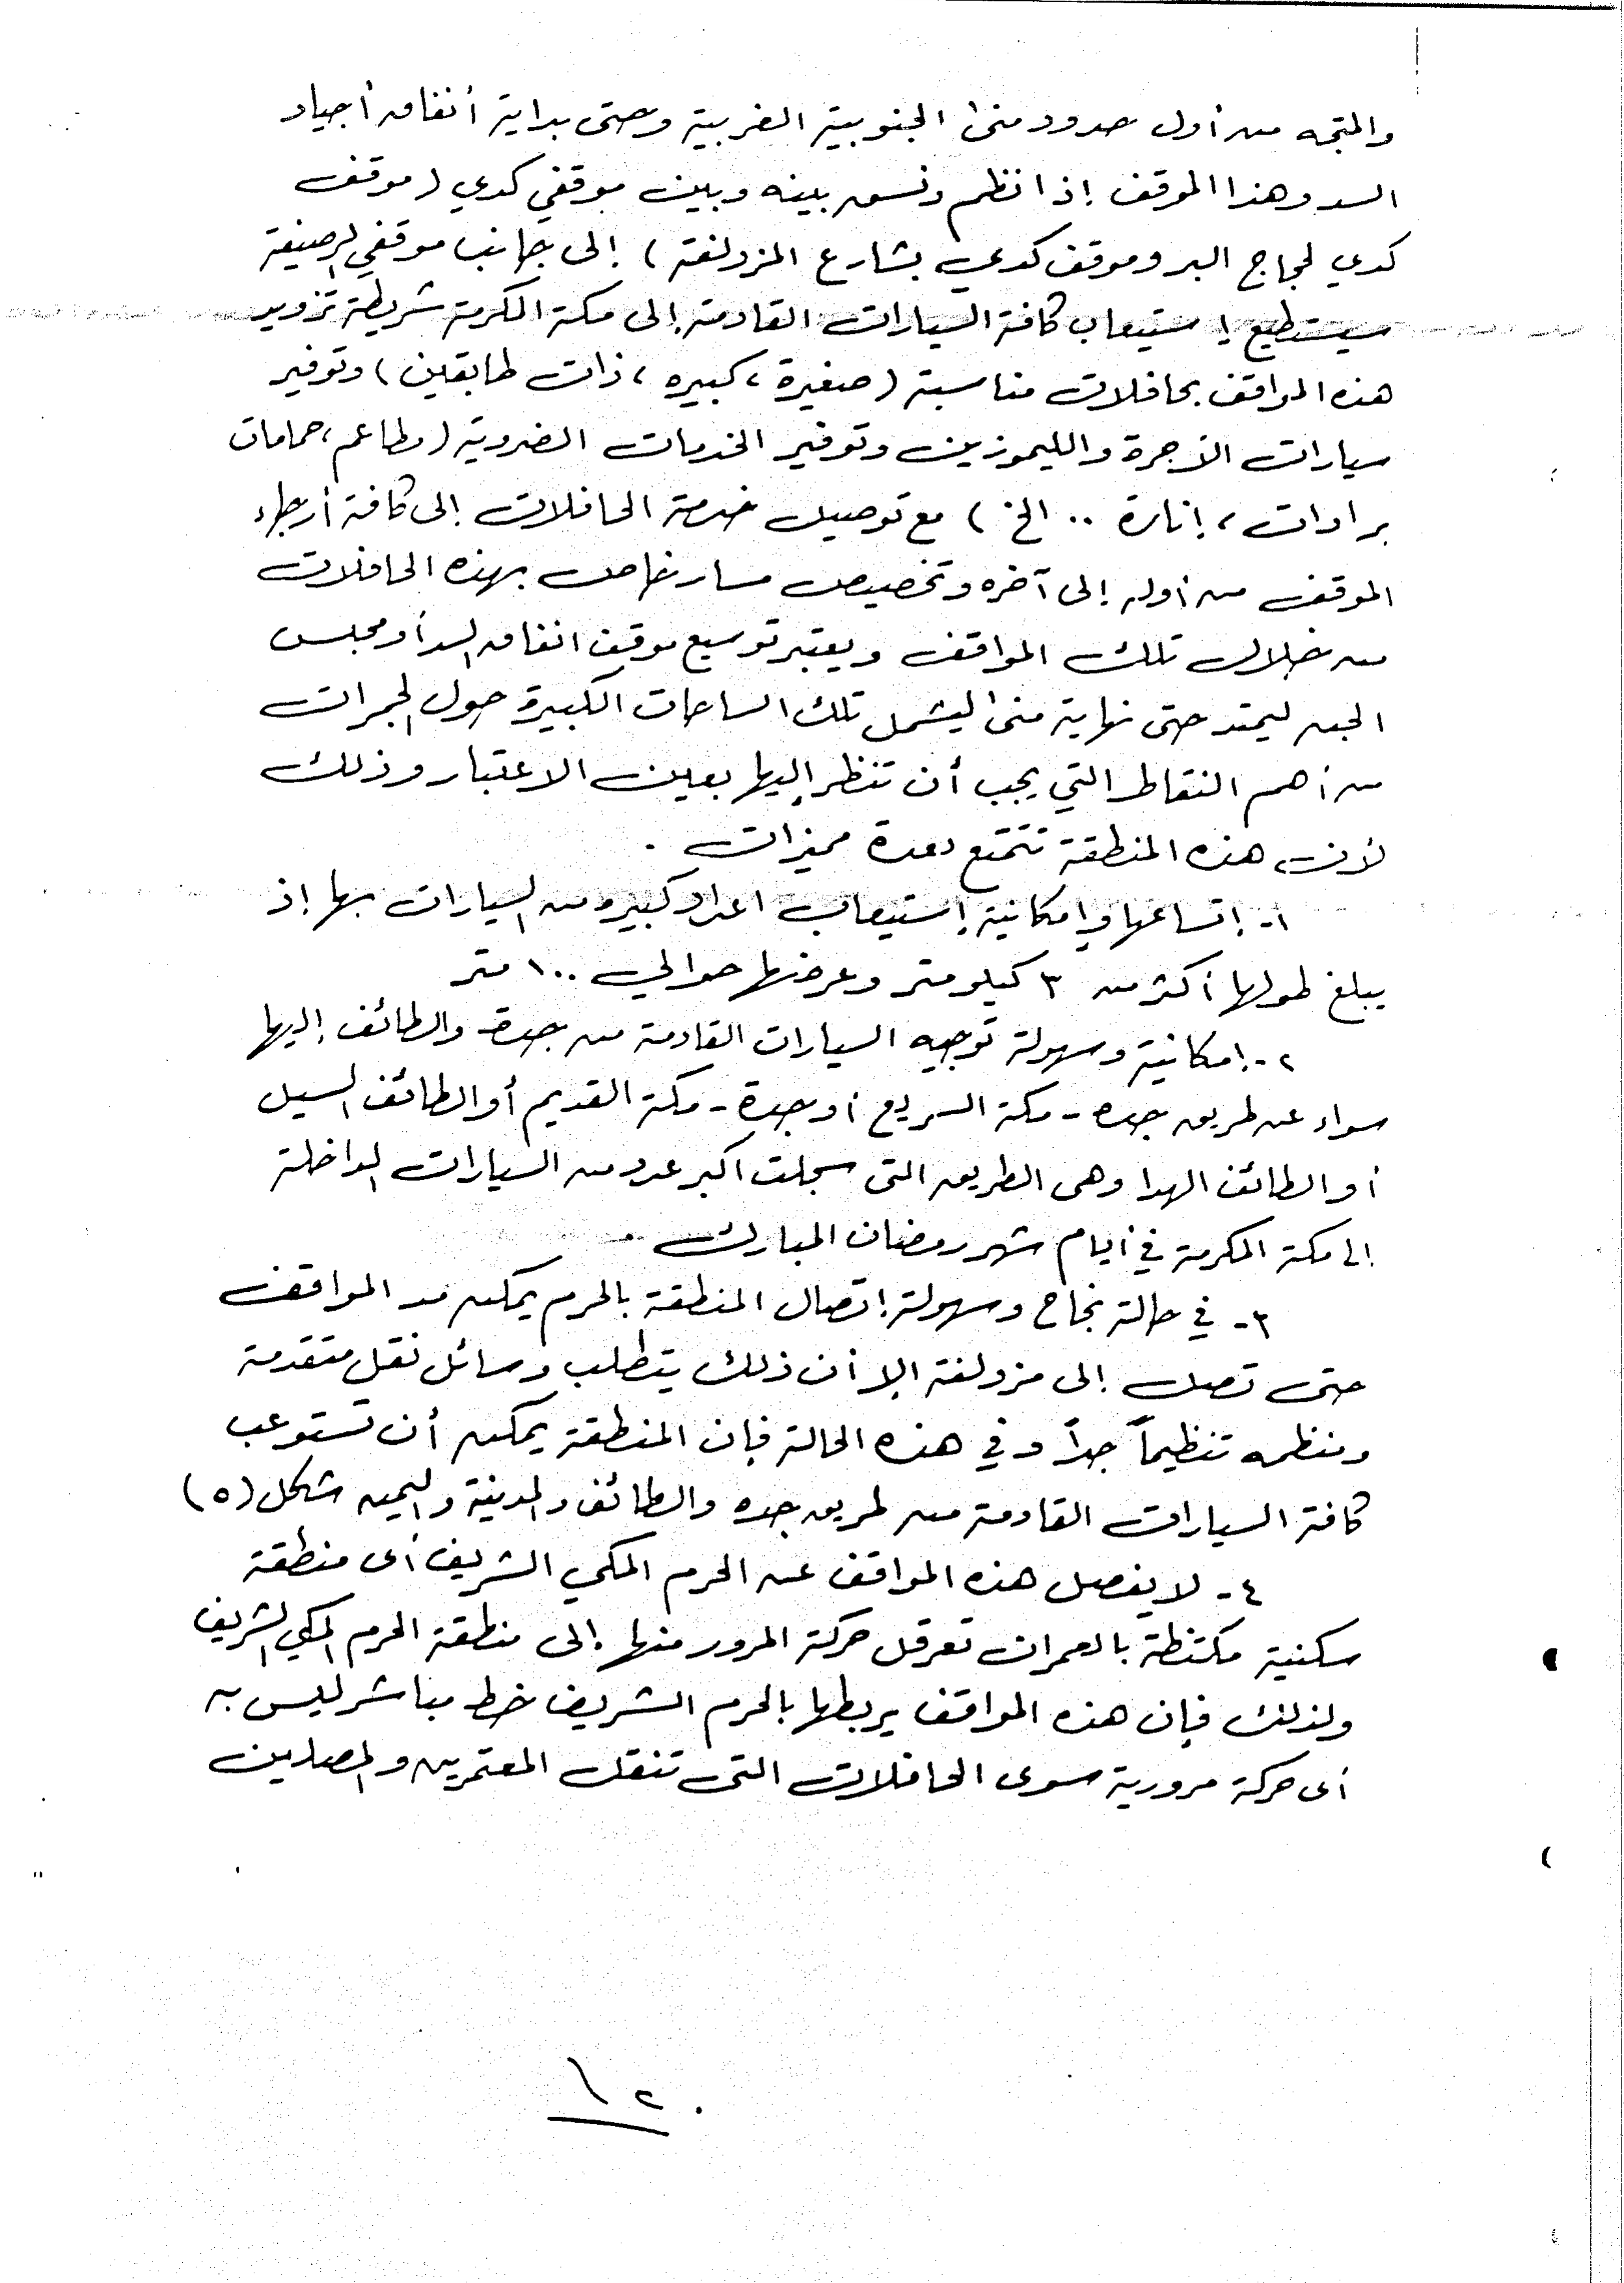 والمتجه من أول حدود منى الجنوبية الغربية وحتى بداية أنفاق أجياد
السد وهذا الموقف إذا نظم ونسق بينه وبين موقفي كدي (موقف
كدي لحجاج البر وموقف كدي بشارع المزدلفة) إلى جانب موقفي الرصيفة
سيستطيع إستيعاب كافة السيارات القادمة إلى مكة المكرمة شريطة تزويد
هذه المواقف بحافلات مناسبة (صغيرة، كبيره، ذات طابقين) وتوفير
سيارات الأجرة والليموزين وتوفير الخدمات الضرورية (مطاعم، حمامات
برادات، إنارة .. الخ) مع توصيل خدمة الحافلات إلى كافة أرجاء
الموقف من أوله إلى آخره وتخصيص مسار خاص بهذه الحافلات
من خلال تلك المواقف ويعتبر توسيع موقف انفاق السد أو مجلس
الجن ليمتد حتى نهاية منى ليشمل تلك الساحات الكبيرة حول الجمرات
من أهم النقاط التي يجب أن تنظر إليها بعين الاعتبار وذلك
لأن هذه المنطقة تتمتع بعدة مميزات .
١- إتساعها وإمكانية إستيعاب اعداد كبيره من السيارات بها إذ
يبلغ طولها أكثر من ٣ كيلومتر وعرضها حوالي ١٠٠ متر
٢- إمكانية وسهولة توجيه السيارات القادمة من جدة والطائف إليها
سواء عن طريق جده - مكة السريع أو جدة - مكة القديم أو الطائف السيل
أو الطائف الهدا وهى الطريق التى سجلت اكبر عدد من السيارات الداخلة
الى مكة المكرمة في أيام شهر رمضان المبارك .
٣- في حالة نجاح وسهولة إتصال المنطقة بالحرم يمكن مد المواقف
حتى تصل إلى مزدلفة إلا أن ذلك يتطلب وسائل نقل متقدمة
ومنظمه تنظيماً جداً وفي هذه الحالة فإن المنطقة يمكن أن تستوعب
كافة السيارات القادمة من طريق جده والطائف والمدينة واليمن شكل (٥)
٤- لا يفصل هذه المواقف عن الحرم المكي الشريف أى منطقة
سكنية مكتظة بالعمران تعرقل حركة المرور منها إلى منطقة الحرم المكي الشريف
ولذلك فإن هذه المواقف يربطها بالحرم الشريف خط مباشر ليس به
أى حركة مرورية سوى الحافلات التى تنقل المعتمرين والمصلين
١٢٠